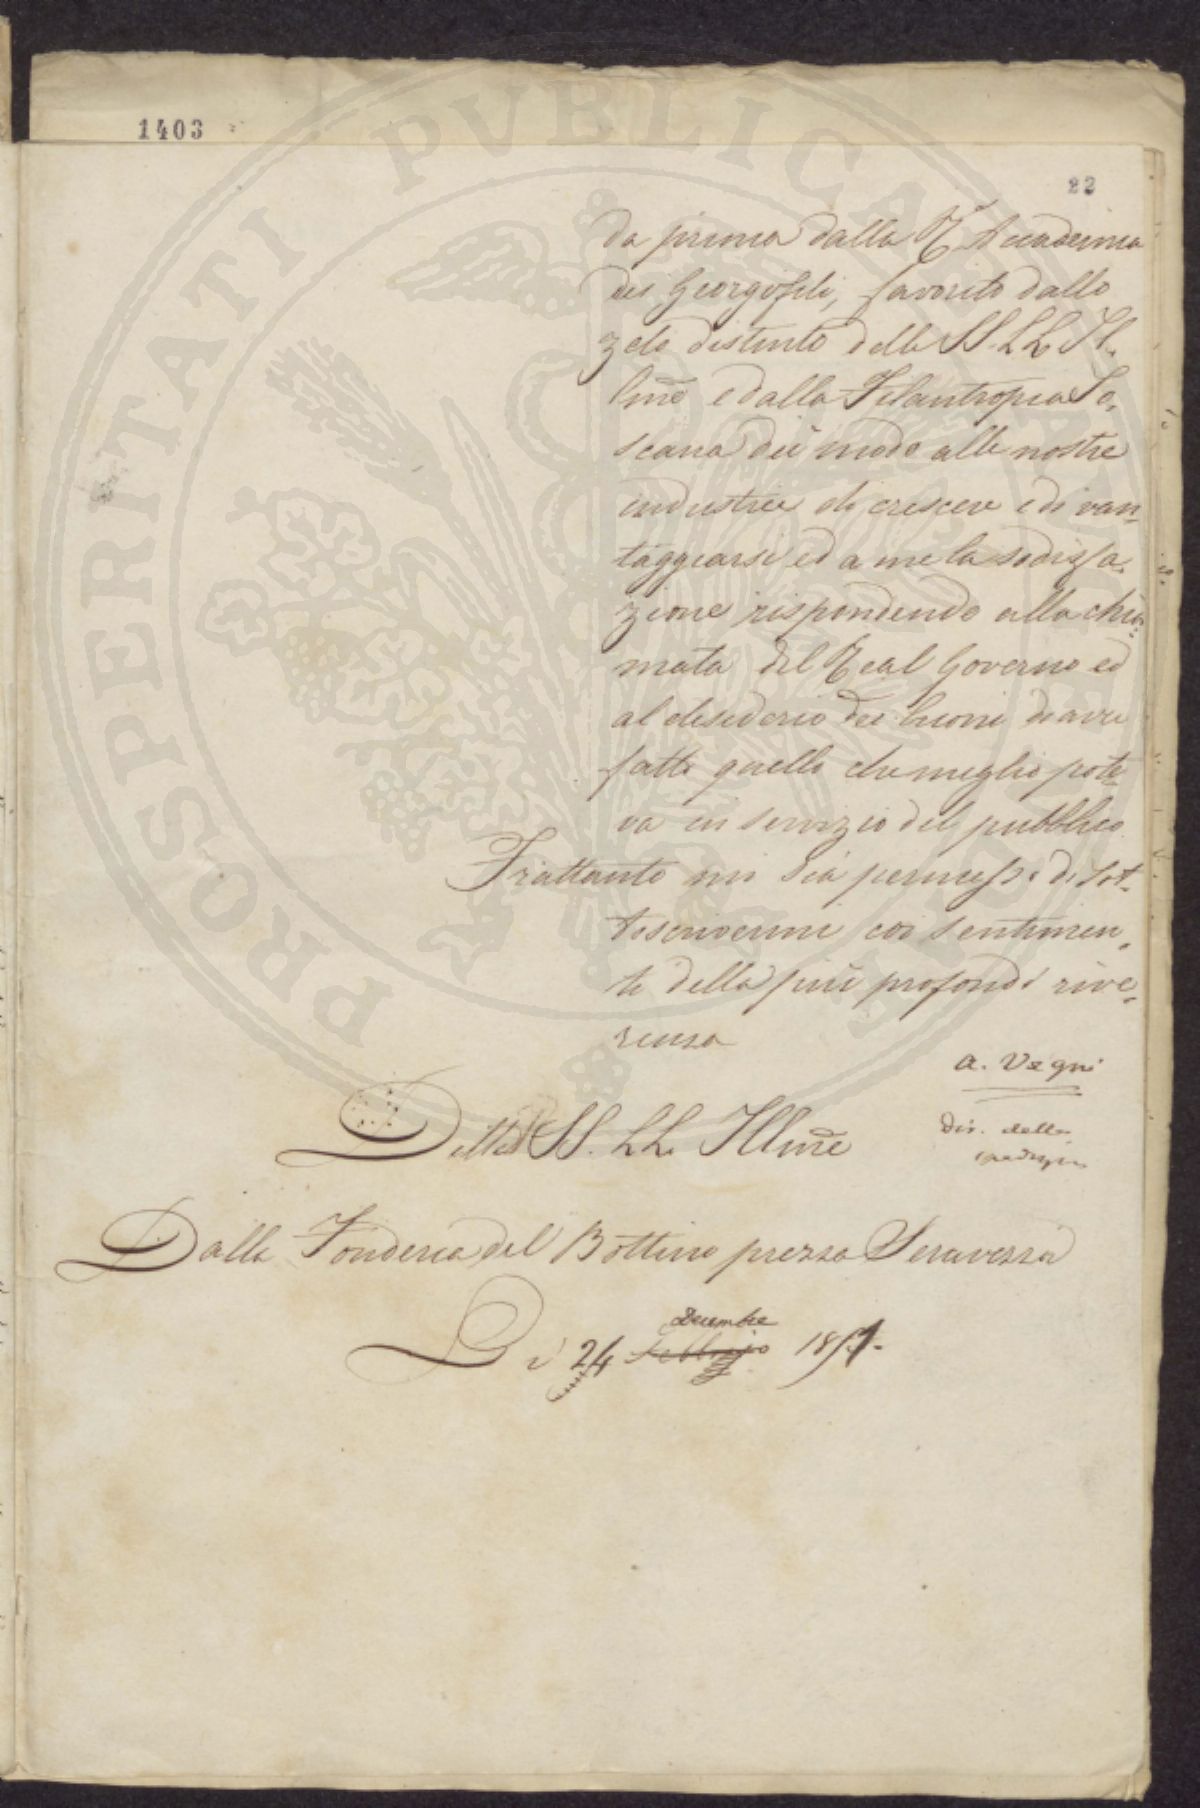 1403
22
da prima dalla R. Accademia
dei Georgofili, favorito dallo
zelo distinto delle SS. LL. Il-
lme e dalla Filantropia To-
scana diè modo alle nostre
industrie di crescere e di van-
taggiarsi ed a me la sodisfa-
zione rispondendo alla chia-
mata del Real Governo ed
al desiderio dei buoni di aver
fatto quello che meglio pote-
va in servizio del pubblico
Frattanto mi sia permesso di sot-
toscrivermi coi sentimen-
ti della più profonda rive-
renza
A. Vegni
Dir. della
Delle SS. LL. Illme
Dalla Fonderia del Bottino presso Seravezza
Decembre
Lì 24 Febbrajo 1851.
PROSPERITATI PVBLICAE